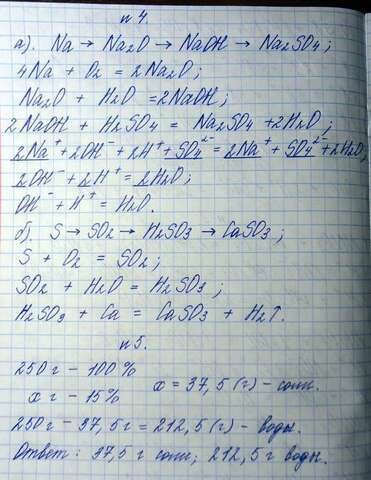 № 4.
а). Na → Na₂O → NaOH → Na₂SO₄;
4Na + O₂ = 2Na₂O;
Na₂O + H₂O = 2NaOH;
2NaOH + H₂SO₄ = Na₂SO₄ + 2H₂O;
2Na⁺ + 2OH⁻ + 2H⁺ + SO₄²⁻ = 2Na⁺ + SO₄²⁻ + 2H₂O;
2OH⁻ + 2H⁺ = 2H₂O;
OH⁻ + H⁺ = H₂O.
б). S → SO₂ → H₂SO₃ → CaSO₃;
S + O₂ = SO₂;
SO₂ + H₂O = H₂SO₃;
H₂SO₃ + Ca = CaSO₃ + H₂↑.
№ 5.
250 г – 100 %
х г – 15%
х = 37,5 (г) – соли.
250 г – 37,5 г = 212,5 (г) – воды.
Ответ: 37,5 г соли; 212,5 г воды.